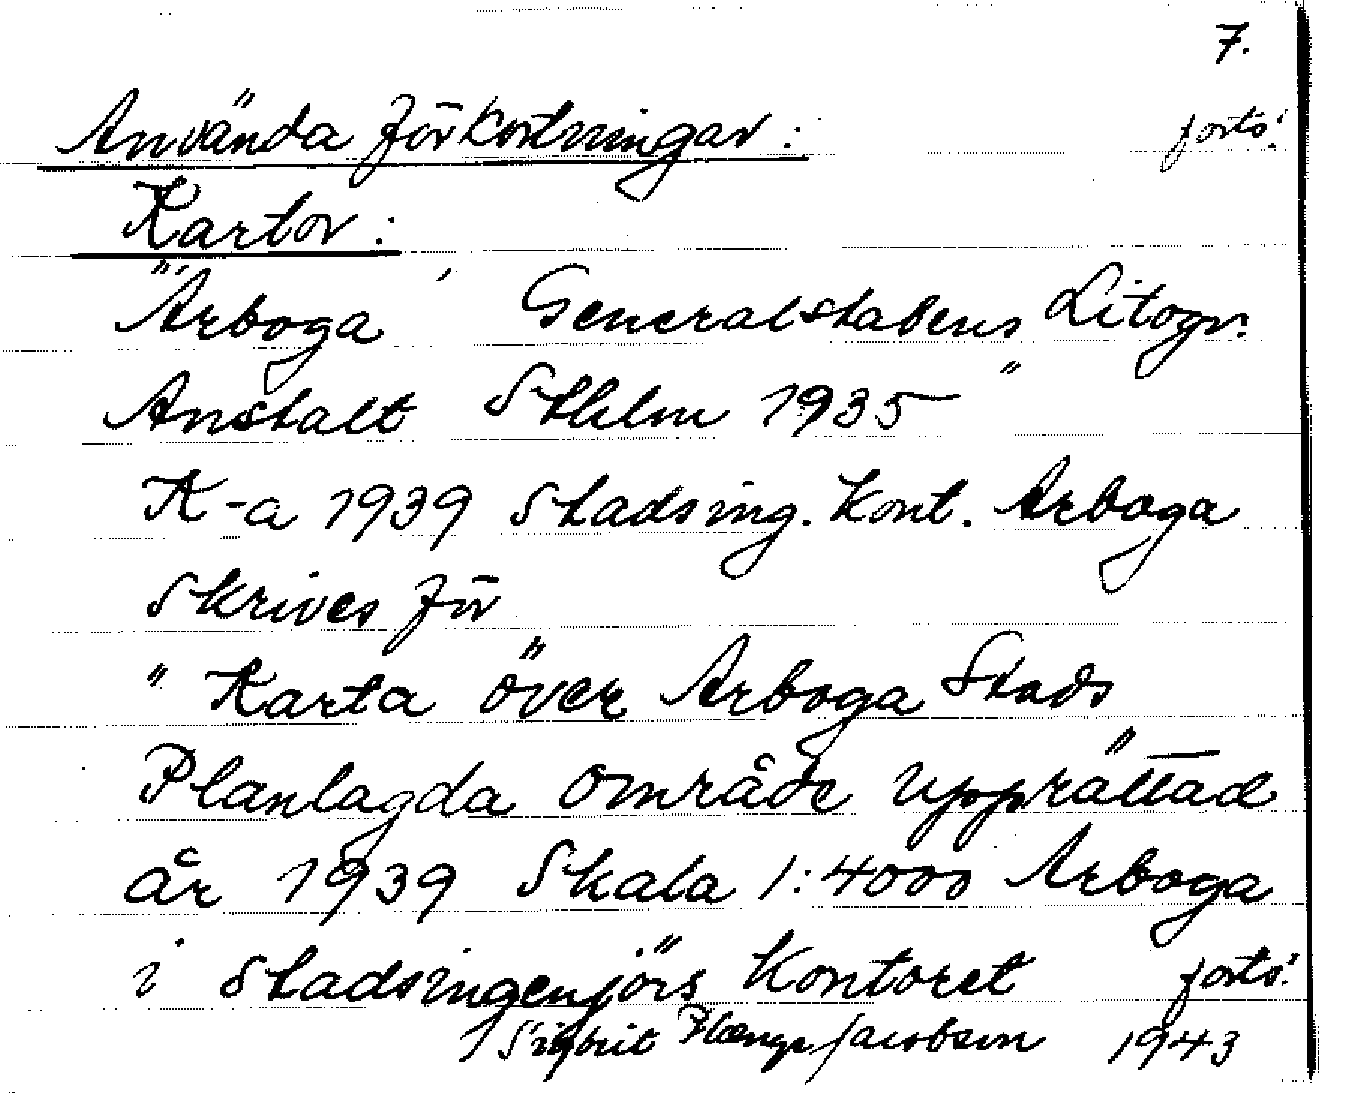 7.
Använda förkortningar: forts!
Kartor:
"Arboga Generalstabens Litogr.
Anstalt Sthlm 1935"
K-a 1939 Stadsing. Kont. Arboga
Skrives för
" Karta över Arboga Stads
Planlagda område upprättad
år 1939 Skala 1:4000 Arboga
i Stadsingenjörs Kontoret forts!
Sigbrit Jacobson 1943